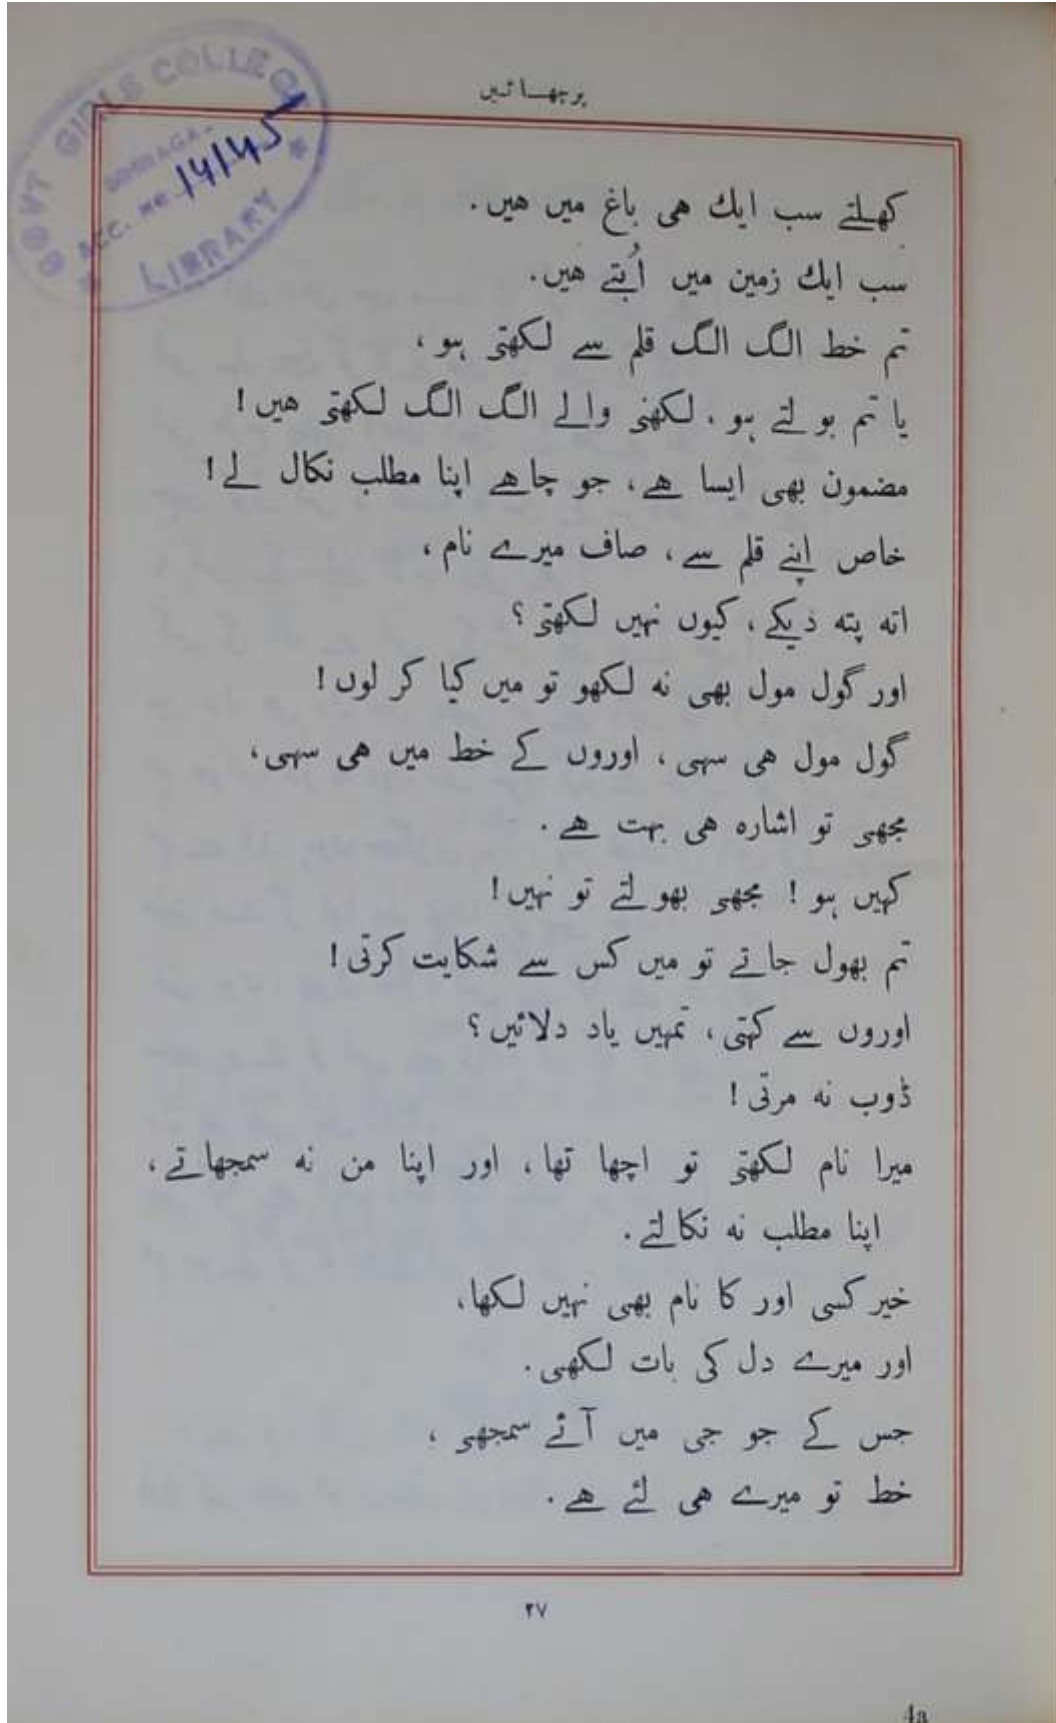 GOVT GIRLS COLLEGE
ACC. No. 14145
LIBRARY
پرچھائیں
کھلتے سب ایك هی باغ میں هیں.
سب ایك زمین میں اُبتے هیں.
تم خط الگ الگ قلم سے لکھتی ہو،
یا تم بولتے ہو، لکھنی والے الگ الگ لکھتی هیں!
مضمون بھی ایسا هے، جو چاهے اپنا مطلب نکال لے!
خاص اپنے قلم سے، صاف میرے نام،
اته پته دیکے، کیوں نہیں لکھتی؟
اور گول مول بھی نه لکھو تو میں کیا کر لوں!
گول مول هی سہی، اوروں کے خط میں هی سہی،
مجھی تو اشاره هی بہت هے.
کہیں ہو! مجھی بھولتے تو نہیں!
تم بھول جاتے تو میں کس سے شکایت کرتی!
اوروں سے کہتی، تمہیں یاد دلائیں؟
ڈوب نه مرتی!
میرا نام لکھتی تو اچھا تھا، اور اپنا من نه سمجھاتے،
اپنا مطلب نه نکالتے.
خیر کسی اور کا نام بھی نہیں لکھا،
اور میرے دل کی بات لکھی.
جس کے جو جی میں آئے سمجھی،
خط تو میرے هی لئے هے.
۲۷
4a